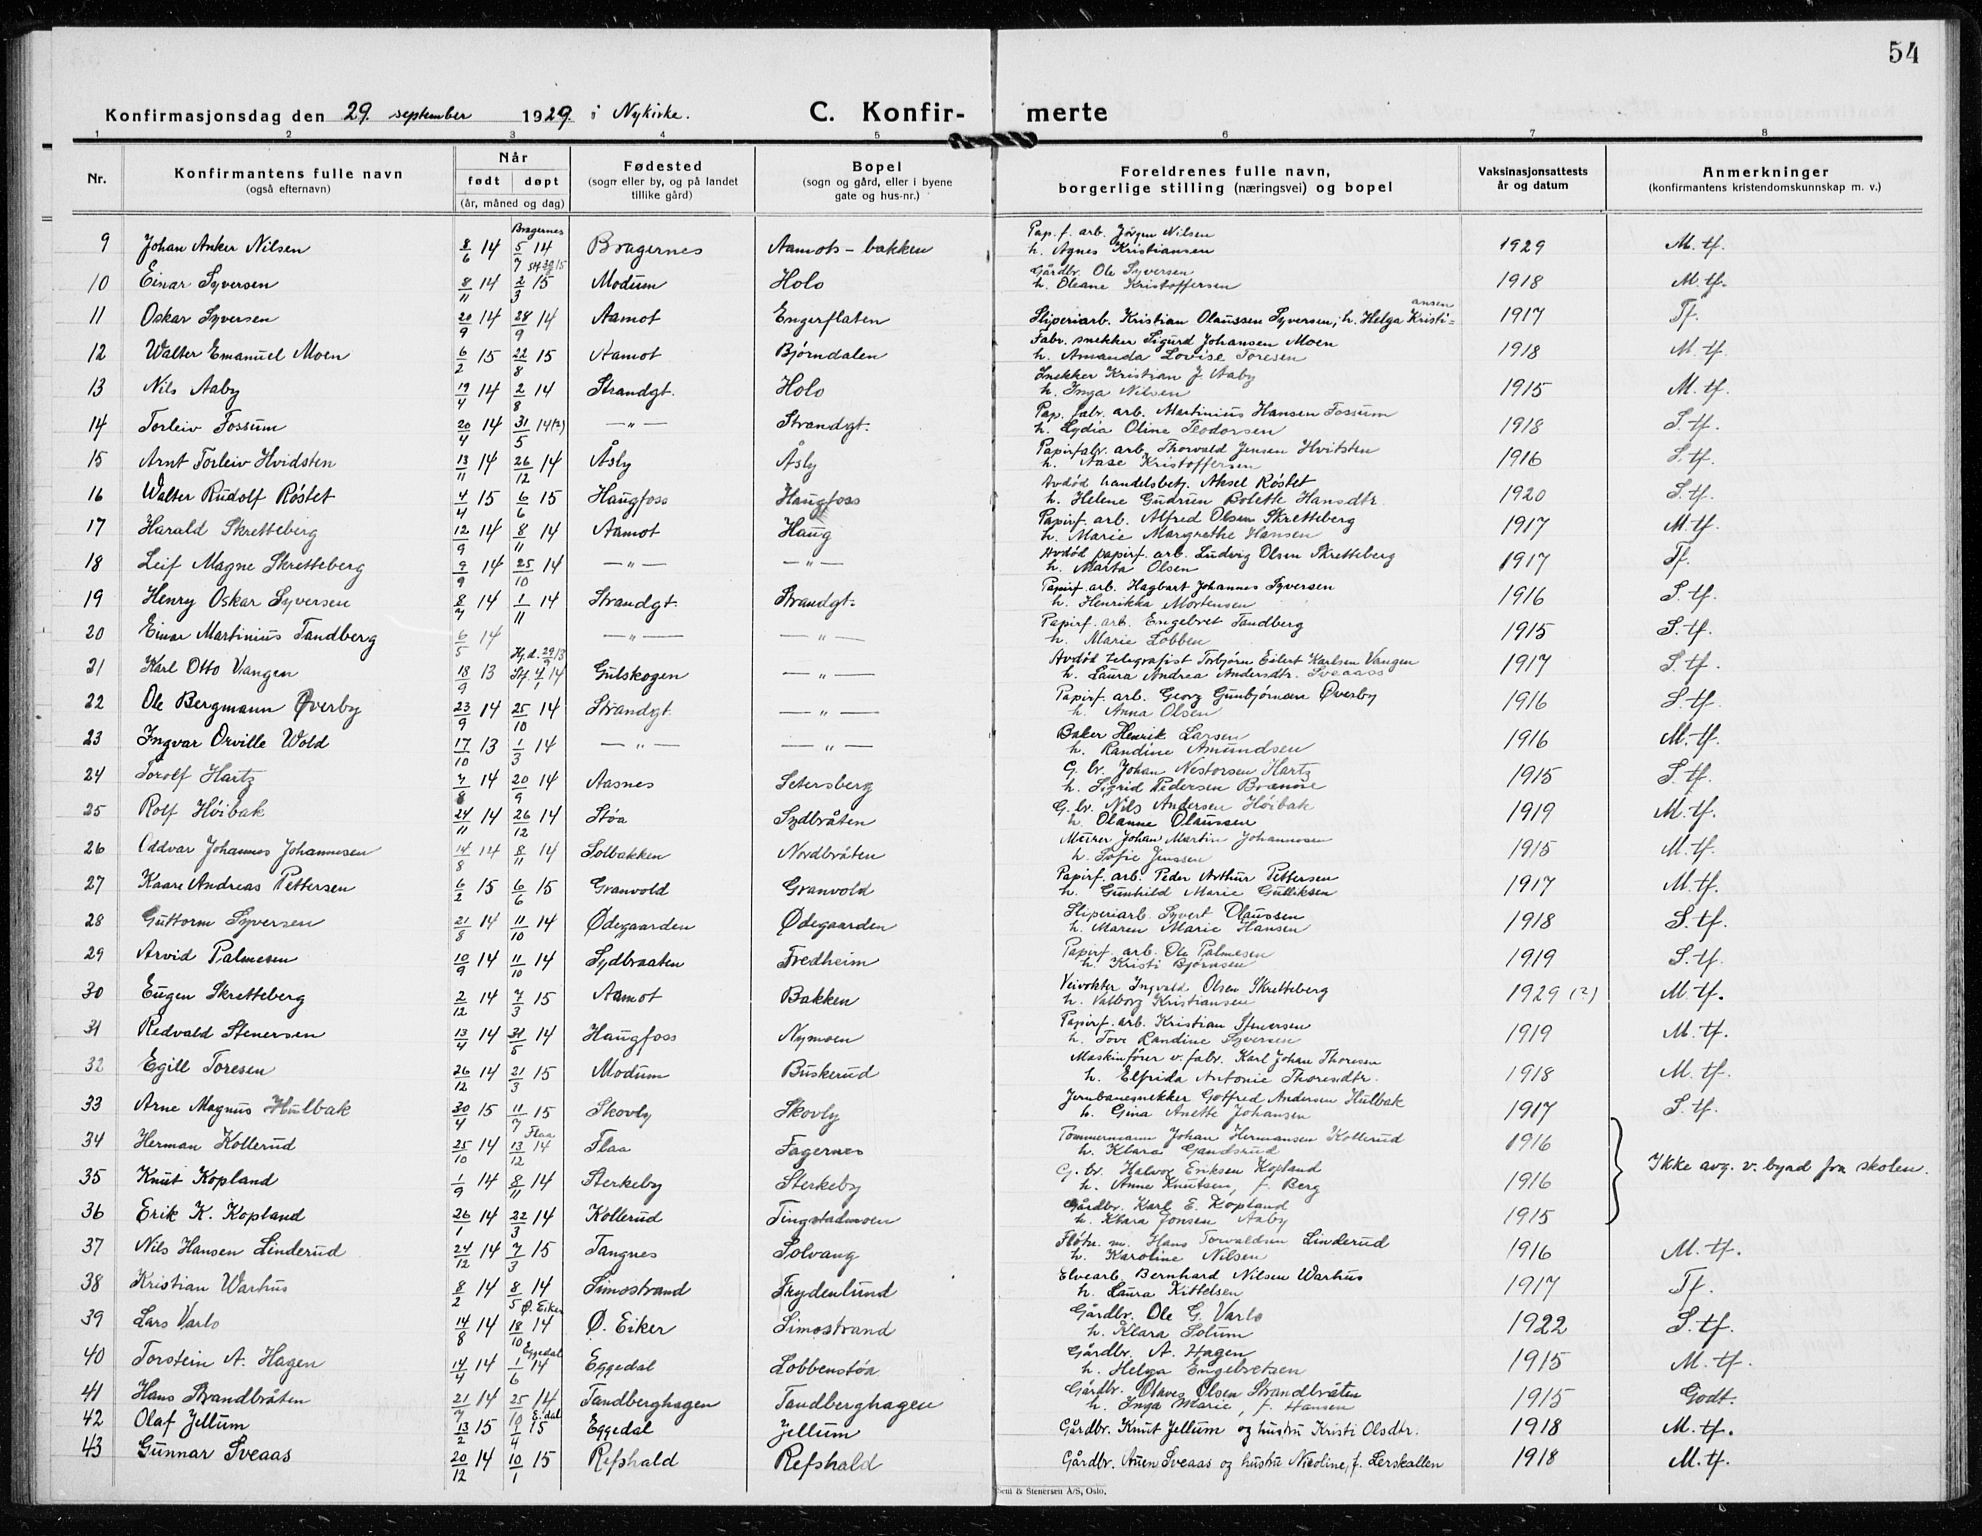 54
Konfirmasjonsdag den 29. september 1929. i Nykirke. C. Konfir- merte
1 2 3 4 5 6 7 8
Nr. Konfirmantens fulle navn (også efternavn) Når født døpt (år, måned og dag) Fødested (sogn eller by, og på landet tillike gård) Bopel (sogn og gård, eller i byene gate og hus-nr.) Foreldrenes fulle navn, borgerlige stilling (næringsvei) og bopel Vaksinasjonsattests år og datum Anmerkninger (konfirmantens kristendomskunnskap m. v.)
9 Johan Anker Nilsen 8/6 14 Bragernes 5/7 14 Bragernes Aamots-bakken Pap. f. arb. Jörgen Nilsen h. Agnes Kristiansen 1929 M. tf.
10 Einar Syversen 8/11 14 2/3 15 Modum Holo Gårdbr. Ole Syversen h. Oleane Kristoffersen 1918 M. tf.
11 Oskar Syversen 20/9 14 28/9 14 Aamot Engerflaten Sliperiarb. Kristian Olaussen Syversen, h. Helga Kristi= ansen 1917 Tf.
12 Walter Emanuel Moen 6/2 15 22/8 15 Aamot Bjørndalen Fabr. snekker Sigurd Johansen Moen h. Amanda Lovise Toresen 1918 M. tf.
13 Nils Aaby 19/4 14 2/8 14 Strandgt. Holo Snekker Kristian J. Aaby h. Inga Nilsen 1915 M. tf.
14 Torleiv Fossum 20/4 14 31/5 14(2) —"— Strandgt. Pap. fabr. arb. Martinius Hansen Fossum h. Lydia Oline Teodorsen 1918 S. tf.
15 Arnt Torleiv Hvidsten 13/11 14 26/12 14 Åsly Åsly Papirfabr. arb. Thorvald Jensen Hvitsten h. Aase Kristoffersen 1916 S. tf.
16 Walter Rudolf Røstet 4/4 15 6/6 15 Haugfoss Haugfoss Avdød handelsbetj. Aksel Røstet h. Helene Gudrun Bolette Hansdtr. 1920 S. tf.
17 Harald Skretteberg 12/9 14 8/11 14 Aamot Haug Papirf. arb. Alfred Olsen Skretteberg h. Marie Margrethe Hansen 1917 M. tf.
18 Leif Magne Skretteberg 9/9 14 25/10 14 —"— —"— Avdød papirf. arb. Ludvig Olsen Skretteberg h. Marta Olsen 1917 Tf.
19 Henry Oskar Syversen 8/7 14 1/11 14 Strandgt. Strandgt. Papirf. arb. Hagbart Johannes Syversen h. Henrikka Mortensen 1916 S. tf.
20 Einar Martinius Tandberg 6/5 14 —"— —"— Papirf. arb. Engebret Tandberg h. Marie Lobben 1915 S. tf.
21 Karl Otto Vangen 18/9 13 Hj.d. 29/9 13 St. 4/1 14 Gulskogen —"— Avdød telegrafist Torbjørn Eilert Karlsen Vangen h. Laura Andrea Andersdtr. Sveaass 1917 S. tf.
22 Ole Bergmann Øverby 23/9 14 25/10 14 Strandgt. —"— Papirf. arb. Georg Gunbjørnsen Øverby h. Anna Olsen 1916 S. tf.
23 Ingvar Orville Wold 17/10 13 1/3 14 —"— —"— Baker Henrik Larsen h. Randine Amundsen 1916 M. tf.
24 Torolf Hartz 7/8 14 20/9 14 Aasnes Setersberg G. br. Johan Nestorsen Hartz h. Sigrid Pedersen Brenne 1915 S. tf.
25 Rolf Høibak 24/11 14 26/12 14 Støa Sydbråten G. br. Nils Andersen Høibak h. Olanne Olaussen 1919 M. tf.
26 Oddvar Johannes Johannesen 14/8 14 8/11 14 Solbakken Nordbråten Murer Johan Martin Johannesen h. Sofie Jenssen 1915 M. tf.
27 Kaare Andreas Pettersen 6/2 15 6/6 15 Granvold Granvold Papirf. arb. Peder Arthur Pettersen h. Gunhild Marie Gulliksen 1917 M. tf.
28 Guttorm Syversen 21/8 14 11/10 14 Ødegaarden Ødegaarden Sliperiarb. Syvert Olaussen h. Maren Marie Hansen 1918 S. tf.
29 Arvid Palmesen 10/9 14 11/10 14 Sydbraaten Fredheim Papirf. arb. Ole Palmesen h. Kristi Bjørnsen 1919 S. tf.
30 Eugen Skretteberg 2/12 14 7/3 15 Aamot Bakken Veivokter Ingvald Olsen Skretteberg h. Valborg Kristiansen 1929 (2) M. tf.
31 Redvald Stenersen 13/4 14 31/5 14 Haugfoss Nymoen Papirf. arb. Kristian Stenersen h. Tove Randine Syversen 1919 M. tf.
32 Egill Toresen 26/12 14 21/3 15 Modum Buskerud Maskinfører v. fabr. Karl Johan Thoresen h. Elfrida Antonie Thorendtr. 1918 M. tf.
33 Arne Magnus Hulbak 30/4 15 11/7 15 Skovly Skovly Jernbanesnekker Gotfred Andersen Hulbak h. Gina Anette Johansen 1917 S. tf.
34 Herman Kollerud 25/10 14 Flaa 13/12 14 Flaa Fagernes Tømmermann Johan Hermansen Kollerud h. Klara Gandsrud 1916
35 Knut Kopland 1/9 14 8/11 14 Sterkeby Sterkeby G. br. Halvor Eriksen Kopland h. Anne Knutsen, f. Berg 1916 Ikke avg. v. byrd fra skolen.
36 Erik K. Kopland 26/1 14 22/3 14 Kollerud Tingstadmoen Gårdbr. Karl E. Kopland h. Klara Jonsen Aaby 1915
37 Nils Hansen Linderud 24/12 14 7/3 15 Tangnes Solvang Fløtn. m. Hans Torvaldsen Linderud h. Karoline Nilsen 1916 M. tf.
38 Kristian Warhus 8/2 14 8/5 14 Simostrand Frydenlund Elvearb. Bernhard Nilsen Warhus h. Laura Kittelsen 1917 Tf.
39 Lars Varlo 14/8 14 Ø. Eiker 18/10 14 Ø. Eiker Simostrand Gårdbr. Ole G. Varlo h. Klara Solum 1922 S. tf.
40 Torstein A. Hagen 14/4 14 Eggedal 1/6 14 Eggedal Lobbenstøa Gårdbr. A. Hagen h. Helga Engebretsen 1915 M. tf.
41 Hans Strandbråten 21/7 14 25/10 14 Tandberghagen Tandberghagen Gårdbr. Olaves Olsen Strandbråten h. Inga Marie, f. Hansen 1915 Godt.
42 Olaf Jellum 13/2 15 E.dal 1/4 15 Eggedal Jellum Gårdbr. Knut Jellum og hustru Kristi Olsdtr. 1918 M. tf.
43 Gunnar Sveaas 20/12 14 10/1 15 Refshald Refshald Gårdbr. Auen Sveaas og hustru Nicoline, f. Lerskallen 1918 M. tf.
Sem & Stenersen A/S, Oslo.